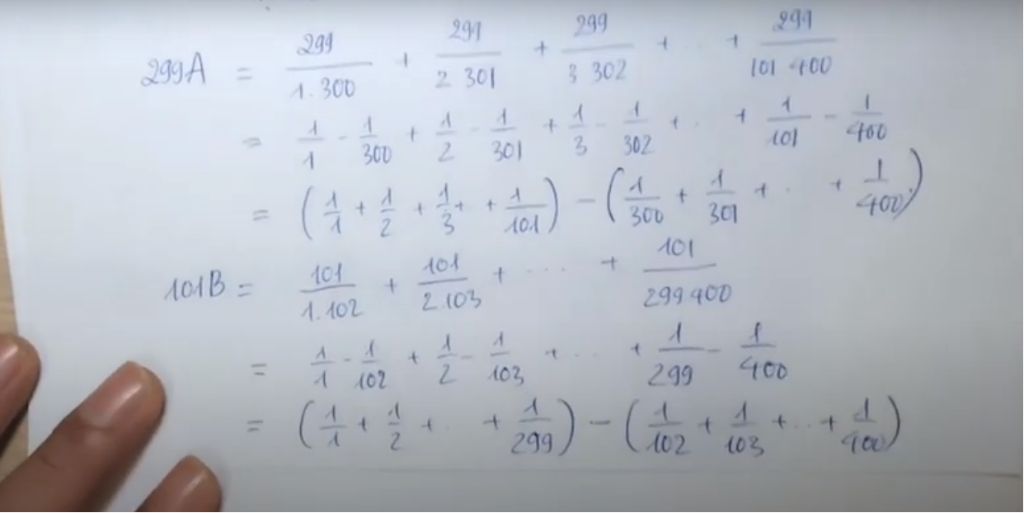 299A = 299/1.300 + 299/2 301 + 299/3 302 + .. + 299/101 400
= 1/1 - 1/300 + 1/2 - 1/301 + 1/3 - 1/302 + .. + 1/101 - 1/400
= (1/1 + 1/2 + 1/3 + + 1/101) - (1/300 + 1/301 + .. + 1/400)
101B = 101/1.102 + 101/2.103 + ... + 101/299 400
= 1/1 - 1/102 + 1/2 - 1/103 + ... + 1/299 - 1/400
= (1/1 + 1/2 + .. + 1/299) - (1/102 + 1/103 + .. + 1/400)